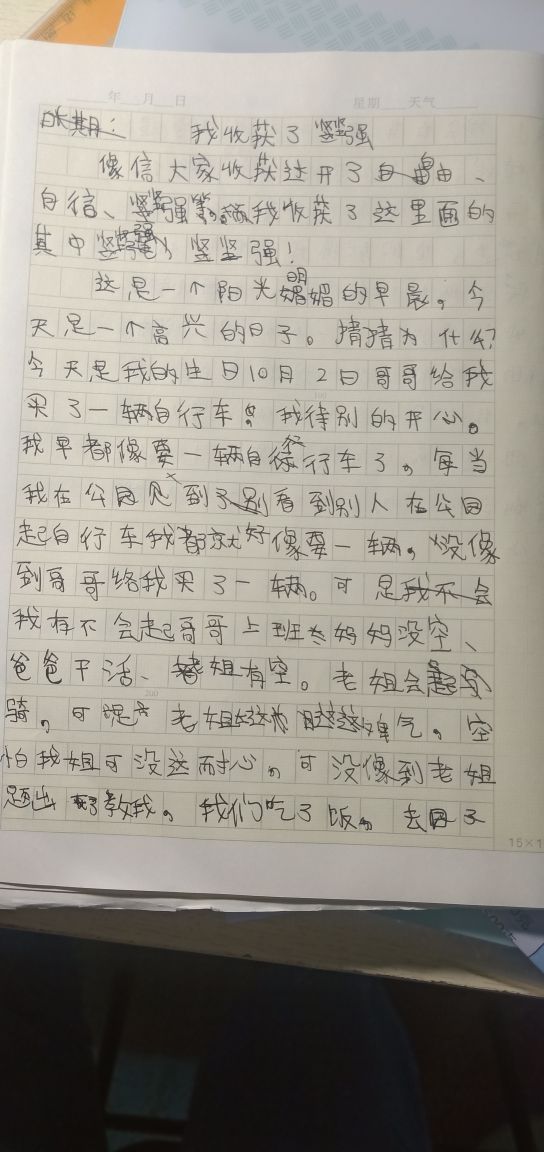 年 月 日 星期 天气
我收获了坚强
像信大家收获过开了自由、
自信、坚强等。我收获了这里面的
其中坚强，坚强！
这是一个阳光明媚的早晨。今
天是一个高兴的日子。猜猜为什么？
今天是我的生日10月2日哥哥给我
买了一辆自行车。我待别的开心。
我早都像要一辆自行车了。每当
我在公园见到了看到别人在公园
起自行车我都就好像要一辆。没像
到哥哥给我买了一辆。可是
我有不会起哥哥上班去妈妈没空、
爸爸干活、姐有空。老姐会
骑。可是 老姐 脾气。空
怕我姐可没这耐心。可没像到老姐
题出 教我。我们吃了饭。去园子
200
15×1